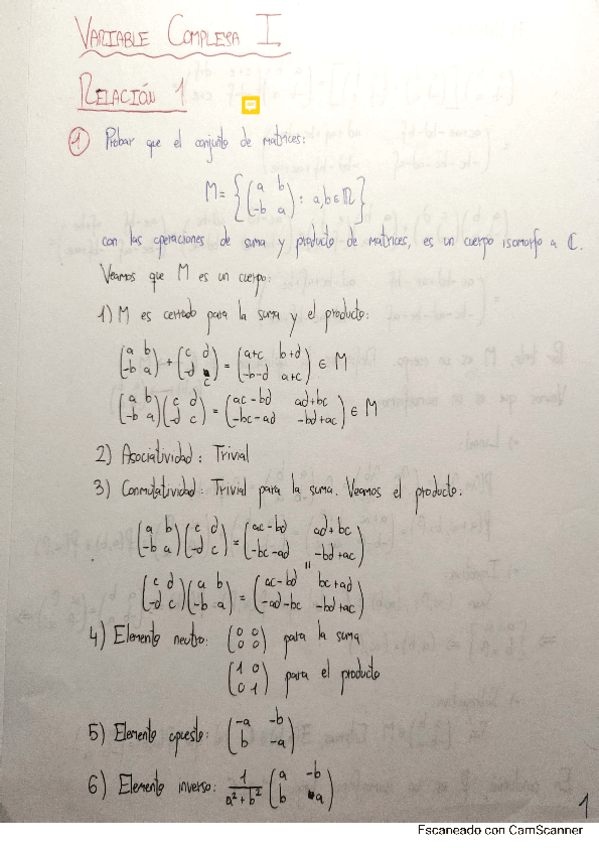 VARIABLE COMPLEJA I
RELACIÓN 1
① Probar que el conjunto de matrices:
M = { ( a b ; -b a ) : a,b ∈ ℝ }
con las operaciones de suma y producto de matrices, es un cuerpo isomorfo a ℂ.
Veamos que M es un cuerpo:
1) M es cerrado para la suma y el producto:
( a b ; -b a ) + ( c d ; -d c ) = ( a+c b+d ; -b-d a+c ) ∈ M
( a b ; -b a ) ( c d ; -d c ) = ( ac-bd ad+bc ; -bc-ad -bd+ac ) ∈ M
2) Asociatividad: Trivial
3) Conmutatividad: Trivial para la suma. Veamos el producto:
( a b ; -b a ) ( c d ; -d c ) = ( ac-bd ad+bc ; -bc-ad -bd+ac )
=
( c d ; -d c ) ( a b ; -b a ) = ( ac-bd bc+ad ; -ad-bc -bd+ac )
4) Elemento neutro: ( 0 0 ; 0 0 ) para la suma
( 1 0 ; 0 1 ) para el producto
5) Elemento opuesto: ( -a -b ; b -a )
6) Elemento inverso: 1/(a²+b²) ( a -b ; b a )
1
Escaneado con CamScanner